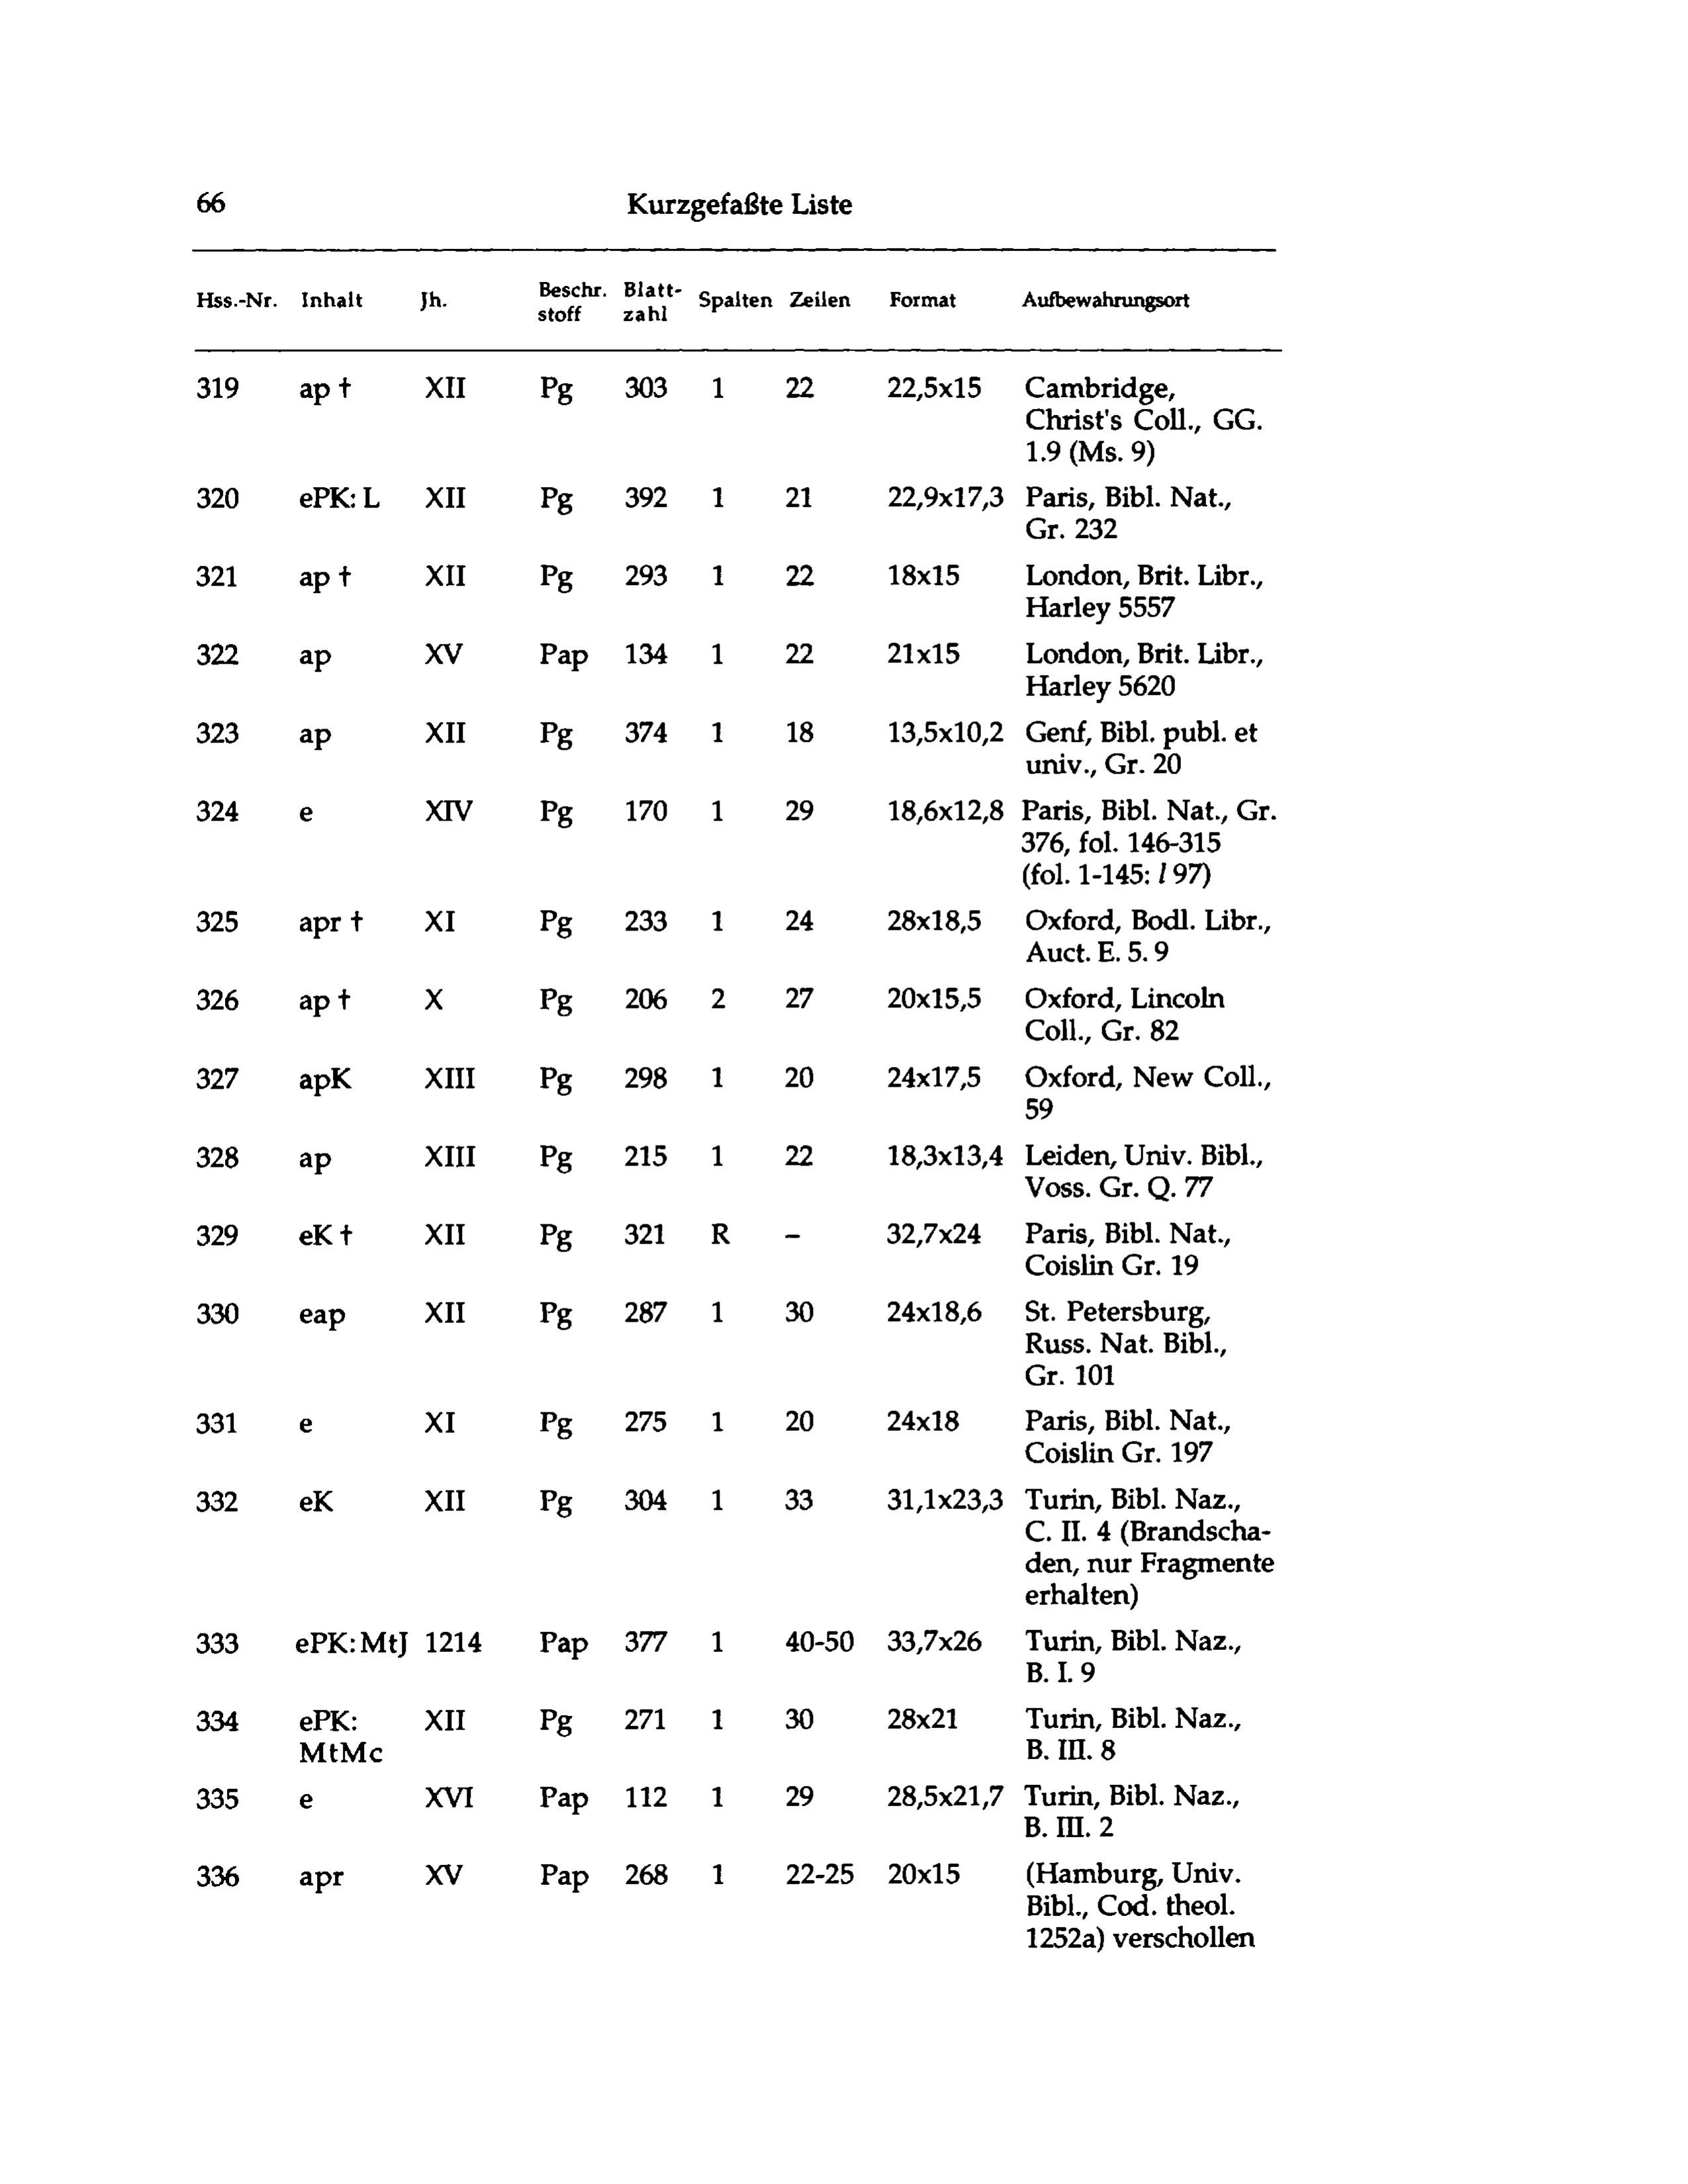 66 Kurzgefaßte Liste
Hss.-Nr. Inhalt Jh. Beschr. stoff Blatt- zahl Spalten Zeilen Format Aufbewahrungsort
319 ap † XII Pg 303 1 22 22,5x15 Cambridge,
Christ's Coll., GG.
1.9 (Ms. 9)
320 ePK: L XII Pg 392 1 21 22,9x17,3 Paris, Bibl. Nat.,
Gr. 232
321 ap † XII Pg 293 1 22 18x15 London, Brit. Libr.,
Harley 5557
322 ap XV Pap 134 1 22 21x15 London, Brit. Libr.,
Harley 5620
323 ap XII Pg 374 1 18 13,5x10,2 Genf, Bibl. publ. et
univ., Gr. 20
324 e XIV Pg 170 1 29 18,6x12,8 Paris, Bibl. Nat., Gr.
376, fol. 146-315
(fol. 1-145: l 97)
325 apr † XI Pg 233 1 24 28x18,5 Oxford, Bodl. Libr.,
Auct. E. 5. 9
326 ap † X Pg 206 2 27 20x15,5 Oxford, Lincoln
Coll., Gr. 82
327 apK XIII Pg 298 1 20 24x17,5 Oxford, New Coll.,
59
328 ap XIII Pg 215 1 22 18,3x13,4 Leiden, Univ. Bibl.,
Voss. Gr. Q. 77
329 eK † XII Pg 321 R – 32,7x24 Paris, Bibl. Nat.,
Coislin Gr. 19
330 eap XII Pg 287 1 30 24x18,6 St. Petersburg,
Russ. Nat. Bibl.,
Gr. 101
331 e XI Pg 275 1 20 24x18 Paris, Bibl. Nat.,
Coislin Gr. 197
332 eK XII Pg 304 1 33 31,1x23,3 Turin, Bibl. Naz.,
C. II. 4 (Brandscha-
den, nur Fragmente
erhalten)
333 ePK: MtJ 1214 Pap 377 1 40-50 33,7x26 Turin, Bibl. Naz.,
B. I. 9
334 ePK: XII Pg 271 1 30 28x21 Turin, Bibl. Naz.,
MtMc B. III. 8
335 e XVI Pap 112 1 29 28,5x21,7 Turin, Bibl. Naz.,
B. III. 2
336 apr XV Pap 268 1 22-25 20x15 (Hamburg, Univ.
Bibl., Cod. theol.
1252a) verschollen